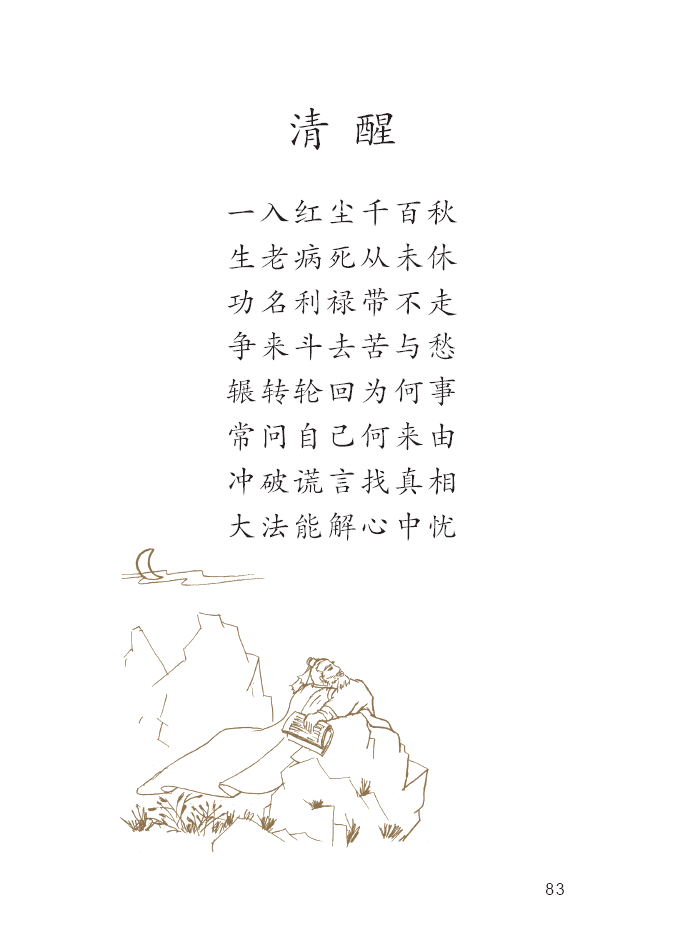 清醒
一入红尘千百秋
生老病死从未休
功名利禄带不走
争来斗去苦与愁
辗转轮回为何事
常问自己何来由
冲破谎言找真相
大法能解心中忧
83